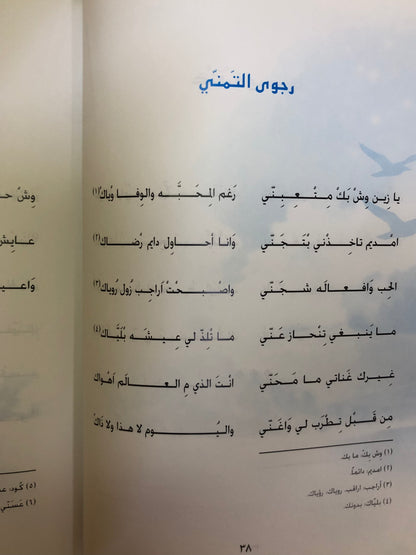 رجوى التمنّي
يا زين وشْ بَكْ مِتْعِبنّي رَغم المحَبَّه والوِفا وْياكْ (١)
امْديم تاخِذْني بْتَجَنّي وَانا أحاوِل دايم رْضاكْ (٢)
الحِب وَافعالَه شجَنّي واصْبحْتْ اَراجِب زُول رُوياكْ (٣)
ما يَنبغي تنْحاز عَنّي ما تْلِذّ لي عِيشَه بْلَيَّاكْ (٤)
غِيركْ غَناتي ما مَحَنّي انْتَ الذي مِ العالَم اَهْواكْ
مِن قَبْل تِطْرَب لي وَاغَنّي واليُوم لا هذا ولا ذاكْ
(١) وش بك: ما بك.
(٢) امديم: دائماً.
(٣) أراجب: اراقب، روياك: رؤياك.
(٤) بليّاك: بدونك.
٣٨
وِشْ
عايش
(٥) كُود:
(٦) عَسَني